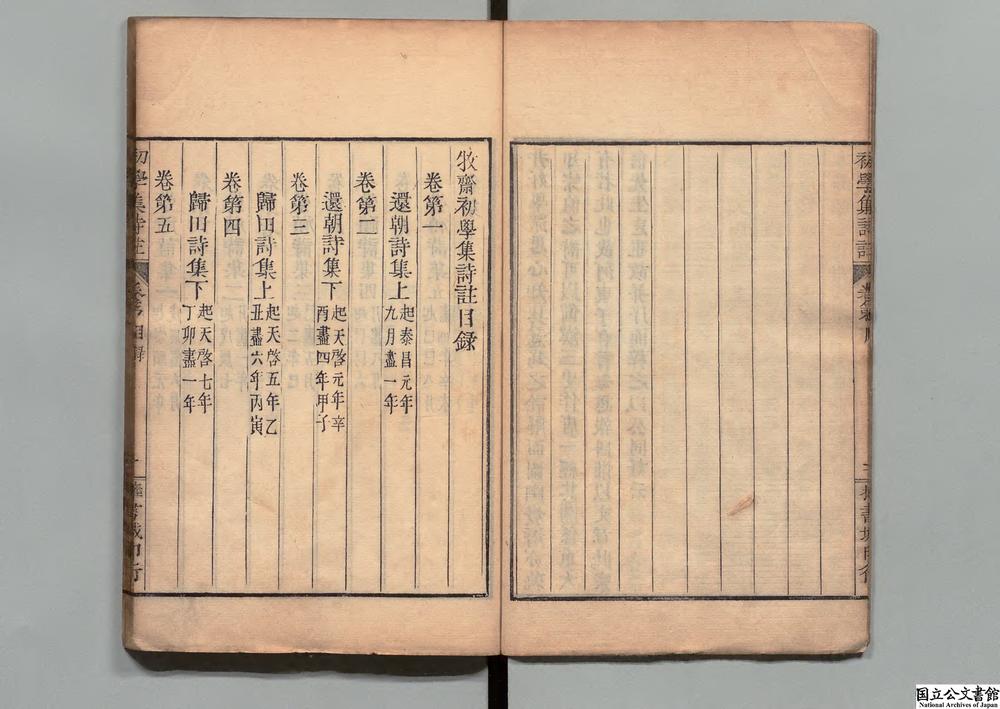 初學集詩註
牧齋初學集詩註目錄
卷第一
還朝詩集上 起泰昌元年九月盡一年
卷第二
還朝詩集下 起天啓元年辛酉盡四年甲子
卷第三
歸田詩集上 起天啓五年乙丑盡六年丙寅
卷第四
歸田詩集下 起天啓七年丁卯盡一年
卷第五
初學集詩註
目錄
国立公文書館
National Archives of Japan